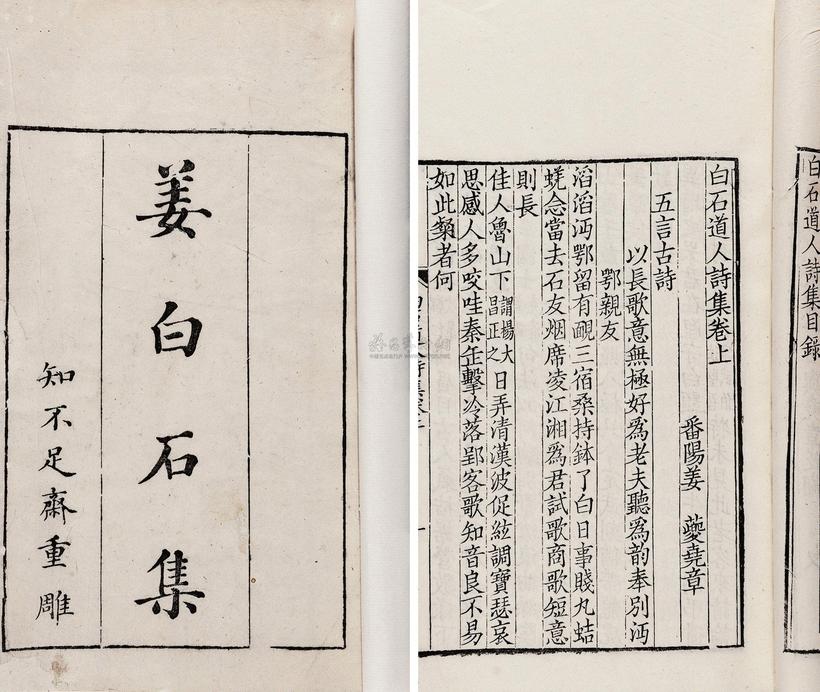 姜白石集
知不足齋重雕
白石道人詩集目錄
白石道人詩集卷上
番陽姜夔堯章
五言古詩
以長歌意無極好爲老夫聽爲韵奉别沔
鄂親友
滔滔沔鄂留有靦三宿桑持鉢了白日事賤丸蛣
蜣念當去石友烟席凌江湘爲君試歌商歌短意
則長
佳人魯山下謂楊大昌正之日弄清漢波促絃調寶瑟哀
思感人多咬哇秦缶擊冷落郢客歌知音良不易
如此粲者何